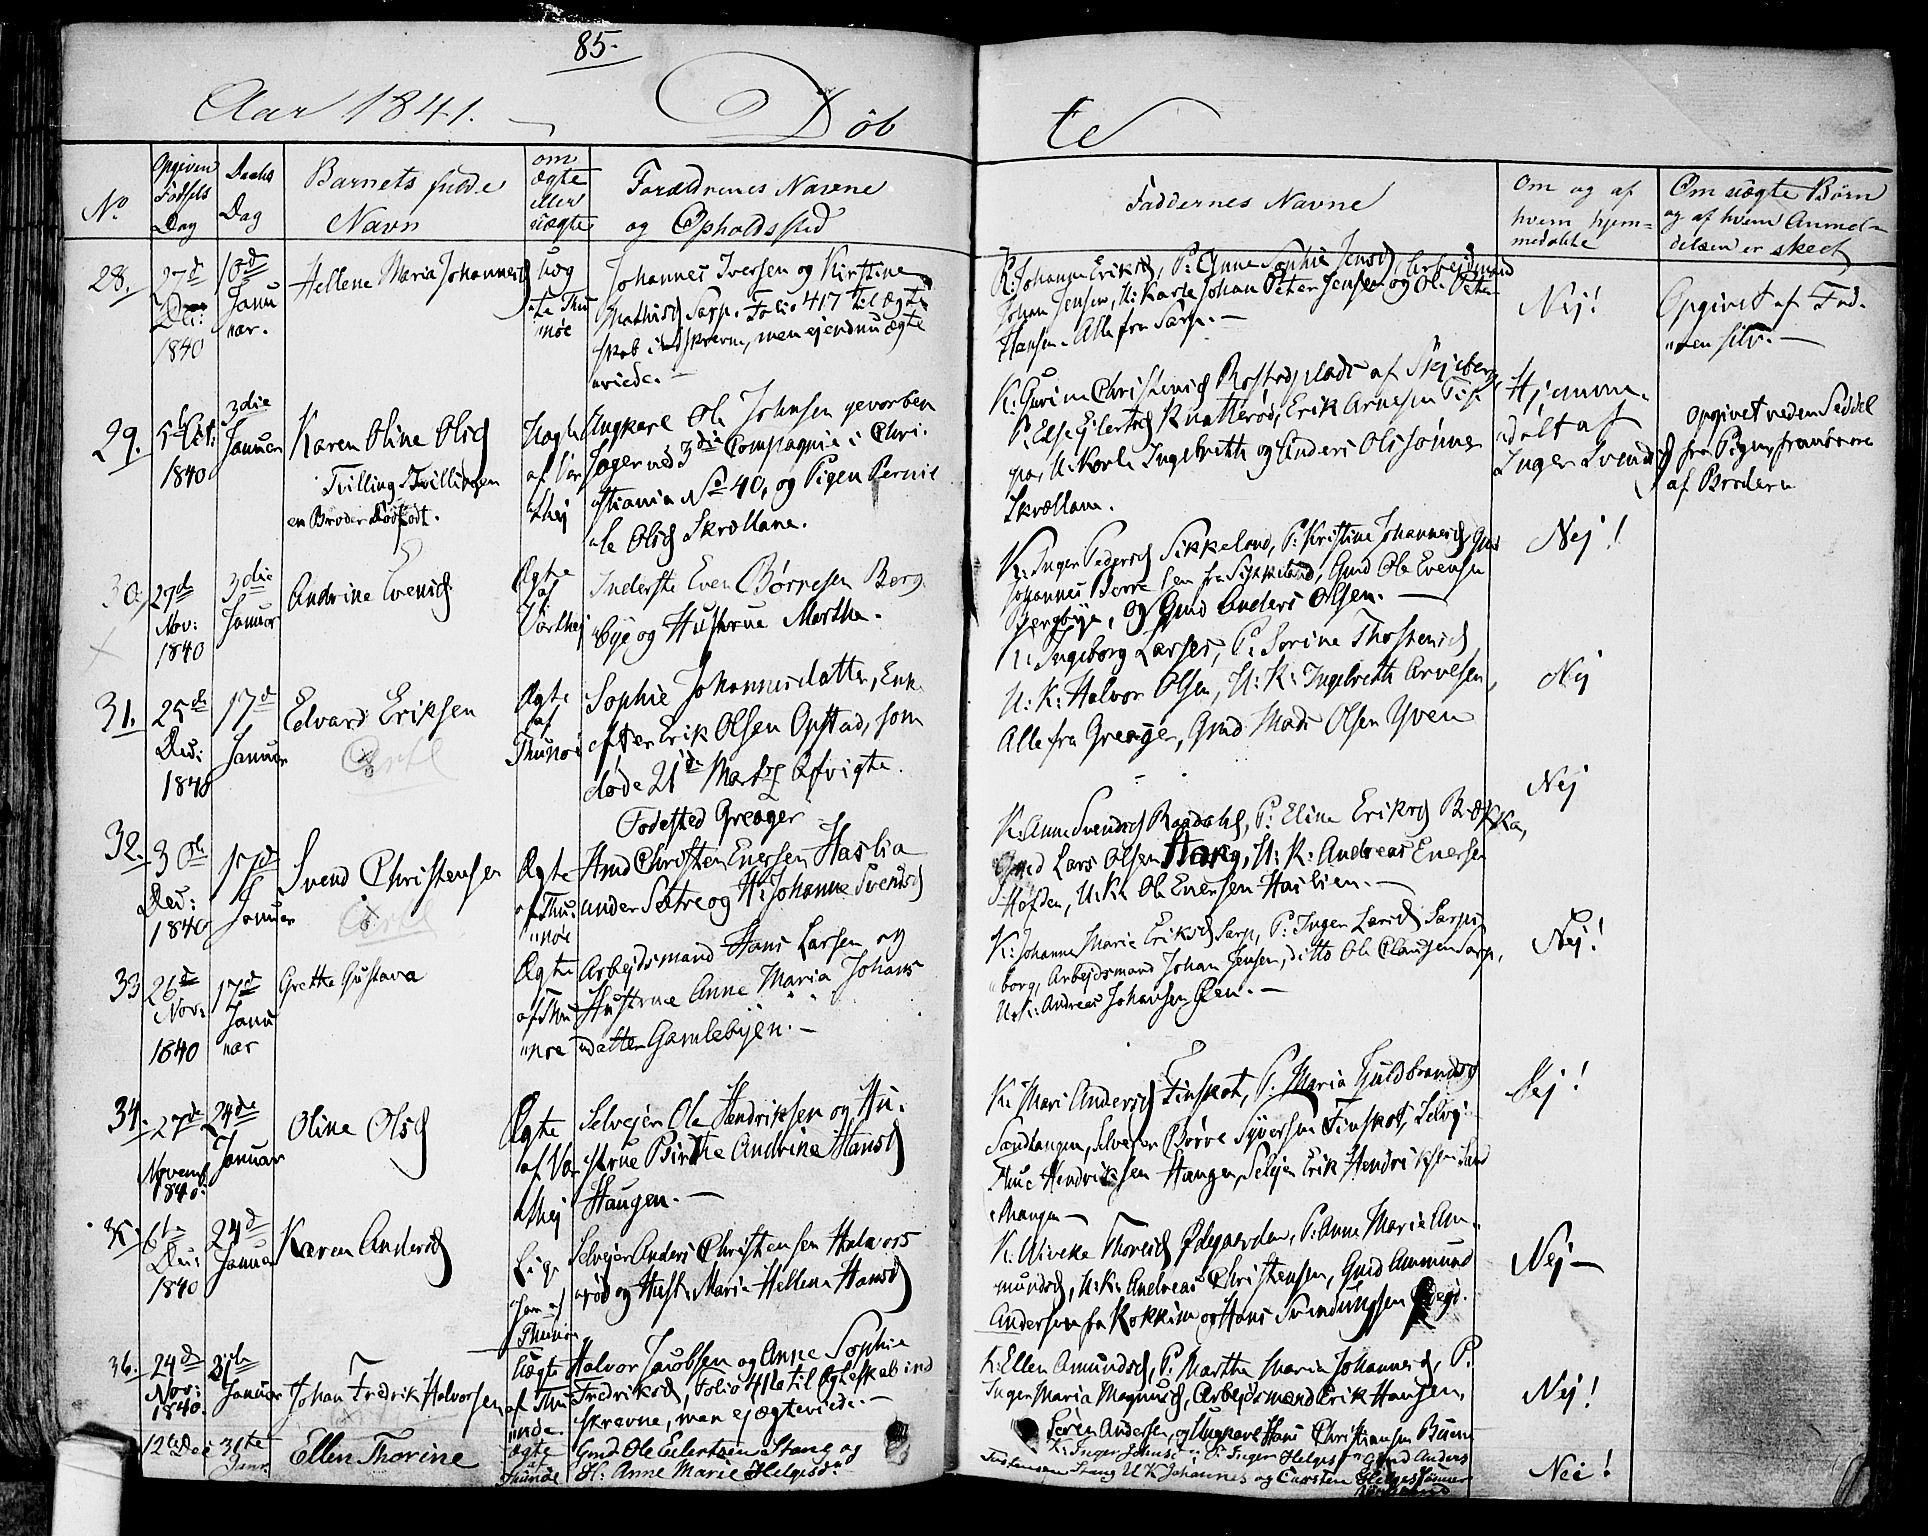 85.
Aar 1841. Døb te
No
Opgiven Fødsels Dag
Daabs Dag
Barnets fulde Navn
om ægte eller uægte
Forældrenes Navne og Opholdssted
Faddernes Navne
Om og af hvem hjemmedøbte
Om uægte Børn og af hvem Anmeldelsen er skeet
28.
27d Dec: 1840
10d Januar.
Hellene Maria Johannesd
Uægte Thunøe
Johannes Iversen og Kirstine
Mathisd Sarp. Folio 417 til Ægte
skab indskrevne, men ej endnu ægte
viede.
K: Johanne Eriksd, P: Anne Sophie Jensd, Arbejdsmand
Johan Jensen, U: Karle Johan Peter Jensen og Ole Peter
Hansen. Alle fra Sarp.
Nej!
Opgivet af Faderen selv.
29.
5te Oct: 1840
3die Januar
Karen Oline Olsd
Tvilling Tvillingen
en Broder Dødfødt.
Uægte af Varthej
Ungkarl Ole Johnsen gevorben
Jæger ved 3die Compagnie i Chri-
stiania No 40, og Pigen Pernil
le Olsd Skrællane.
K: Guri Christensd Rostadplads af Skjeberg
P. Else Ejlertsd Knatterød, Erik Arnesen
U: Karle Ingebreth og Anders Olssønner
Skrællane.
Hjemmedøbt af
Inger Svendsd
Opgivet ved en Seddel
fra Pigen frambaaren
af Broderen
30.
29d Nov: 1840
3die Januar
Andrine Evensd
Ægte af Varthej
Inderste Even Børresen Berg
bye og Hustrue Marthe.
K: Inger Pedersd Sikkeland, P: Kristine Johannesd, Gmd
Johannes Børresen fra Sikkeland, Gmd Ole Evensen
Bergbye, og Gmd Anders Olsen.
Nej!
31.
25de Dec: 1840
17d Januar
Edvard Eriksen
Ægte af Thunøe
Sophie Johannesdatter, Enke
efter Erik Olsen Opstad, som
døde 21de Marts Afvigte.
Fødested Greager
K: Ingeborg Larses, P: Sorine Thostensd
U: K: Halvor Olsen, U: K: Ingebreth Arvesen,
Alle fra Greager, Gmd Mads Olsen Yven
Nej
32.
3die Dec: 1840
17d Januar
Svend Christensen
Ægte af Thunøe
Hmd Christen Enersen Haslia
under Sætre og H: Johanne Svendsd
K: Anne Svendsd Raadahl, P: Eline Eriksd Bækka,
Gmd Lars Olsen Haug, U: K: Andreas Enersen
Høfden, U: K: Ole Enersen Haslien.
Nej
33
26d Nov: 1840
17d Januar
Grethe Gustava
Ægte af Thunøe
Arbejdsmand Hans Larsen og
Hustrue Anne Maria Johans
datter Gamlebyen.
K: Johanne Marie Eriksd Sarp, P: Inger Larsd Sarps
borg, Arbejdsmand Johan Jensen, ditto Ole Clausen Sarp,
U: K: Andreas Johansen Øen.
Nej!
34.
27d Novemb 1840.
24de Januar
Oline Olsd
Ægte af Varthej
Selvejer Ole Hendriksen og Hu-
strue Birthe Andrine Hansd
Haugen.
K: Mari Andersd Finskot, P: Maria Guldbrandsd
Sandhaugen, Selvejer Børre Syversen Finskot, Selvej:
Hendriksen Haugen, Selvejer Erik Hendriksen Sand
haugen
Nej!
35.
Dec: 1840
24d Januar
Karen Andersd
Lige som af Thunøe
Selvejer Anders Christensen Halvors
rød og Hust: Marie Hellene Hansd
K: Wiveke Thoresd Ødegaarden, P: Anne Marie Am
mundsd, U: K: Andreas Christensen, Gmd Ammund
Andersen fra Kokkim og Hans
Nej
36.
24d Nov: 1840.
31te Januar
Johan Fredrik Halvorsen
Uægte af Thunøe.
Halvor Jacobsen og Anne Sophie
Fredriksd, Folio 416 til Ægteskab ind
skrevne, men ej ægteviede.
K: Ellen Amundsd, P: Marthe Maria Johannesd, P.
Inger Maria Magnusd, Arbejdsmand Erik Hansen,
Søren Andersen, og Ungkarl Hans Christiansen
Nej!
12te Dec
31te Janr.
Ellen Thorine
ægte af Thunøe
Gmd Ole Eilertsen Stang og
H: Anne Marie Helgesdr
K: Inger P: Inger Gmd Anders
Stang U K Johannes og Carsten Helgessønner
Nei!